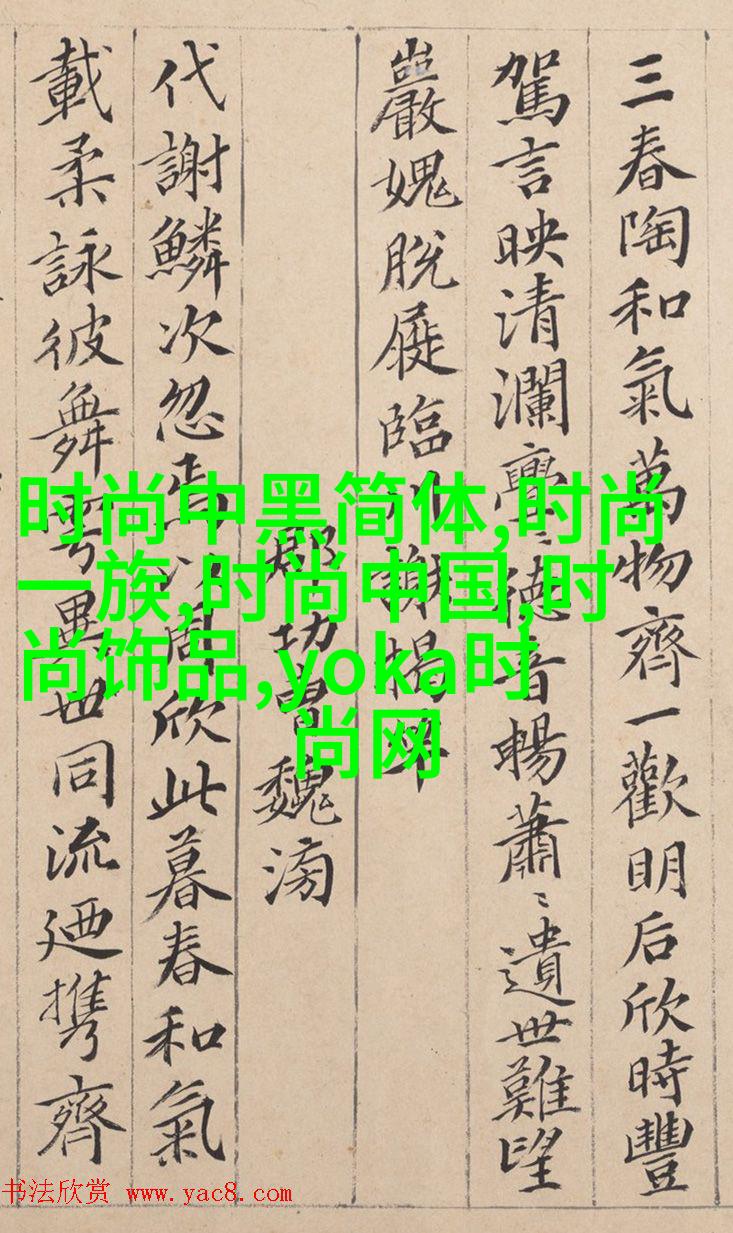 三春陶和氣萬物齊一歡明后欣時豐
駕言映清瀾亹〻德音暢蕭〻遺世難望
巖愧脫屣臨川謝揭竿
郡功曹魏滂
代謝鱗次忽焉以周欣此暮春和氣
載柔詠彼舞雩異世同流廼携齊
时尚中黑简体,时尚
一族,时尚中国,时
尚饰品,yoka时
尚网
书法欣赏 www.yac8.com